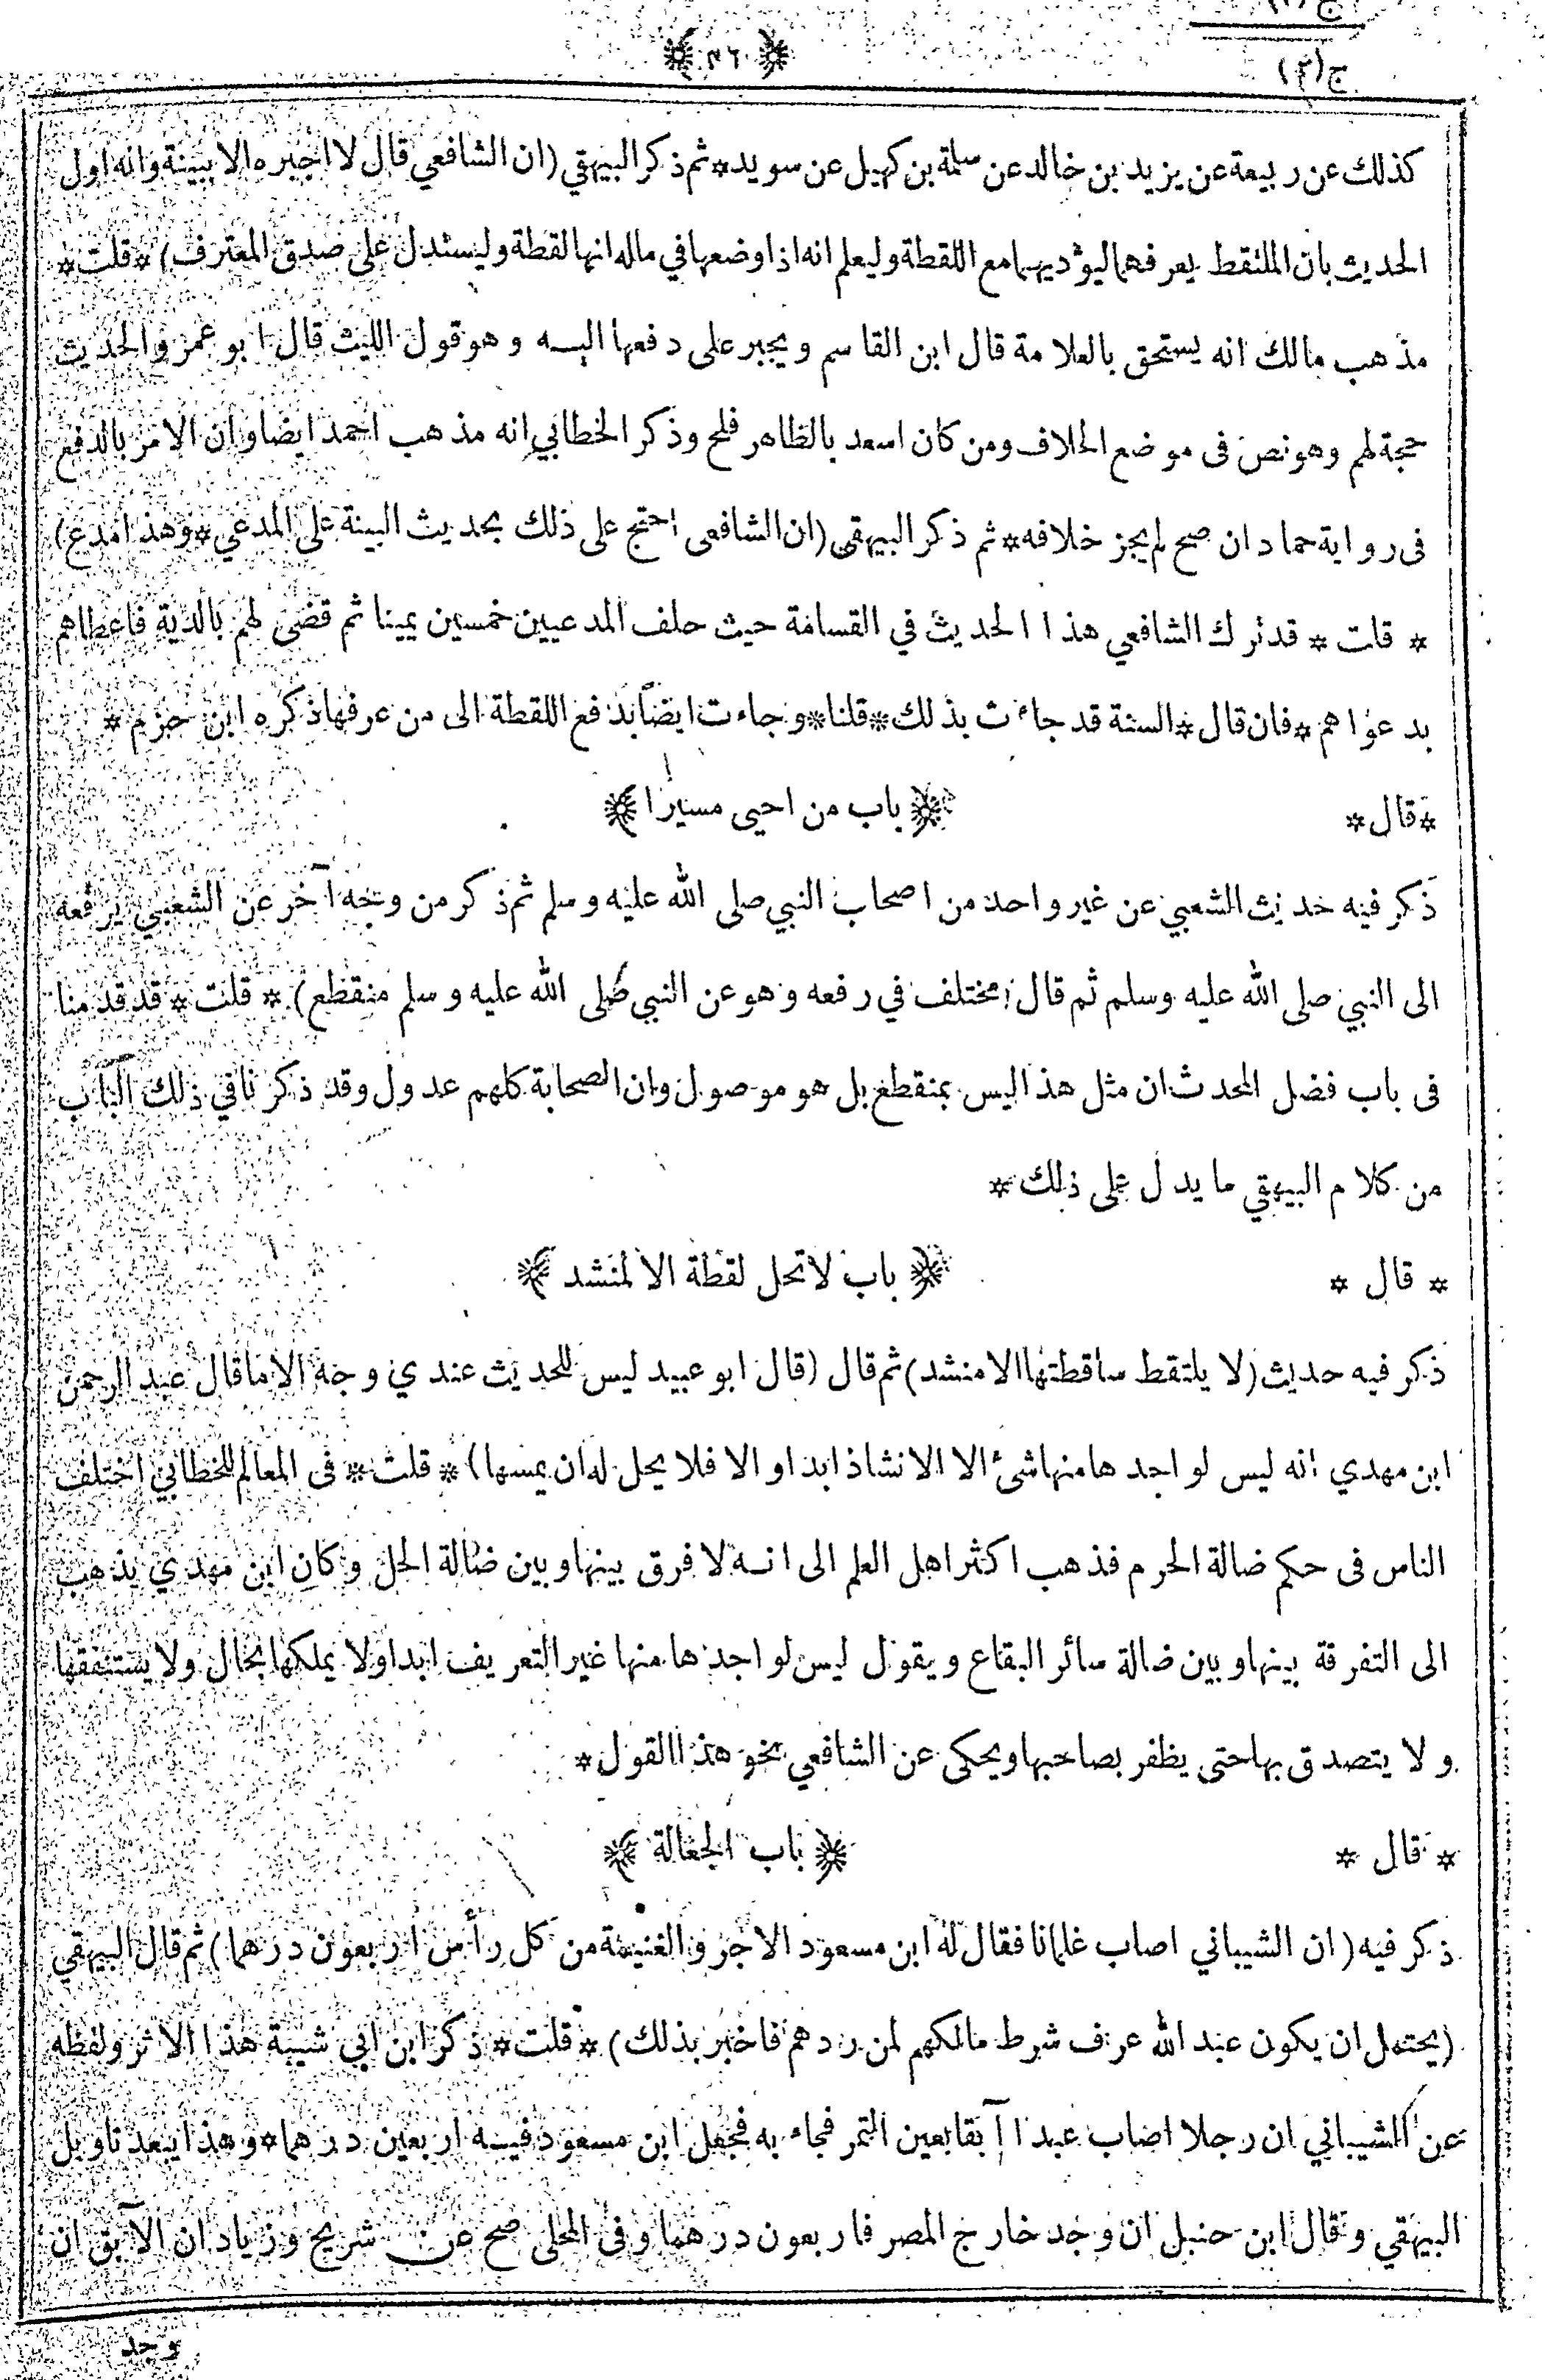 ج (٢)
كذلك عن ربيعة عن يزيد بن خالد عن سلمة بن كهيل عن سويد * ثم ذكر البيهقي (ان الشافعي قال لا اجبره الا ببينة وانه اول
الحديث بان الملتقط يعرفهما ليؤديهما مع اللقطة وليعلم انه اذا وضعها في ماله انها لقطة وليستدل على صدق المعترف) * قلت *
مذهب مالك انه يستحق بالعلامة قال ابن القاسم ويجبر على دفعها اليه وهو قول الليث قال ابو عمر والحديث
حجة لهم وهو نص فى موضع الخلاف ومن كان اسعد بالظاهر فلح وذكر الخطابي انه مذهب احمد ايضا وان الامر بالدفع
فى رواية حماد ان صح لم يجز خلافه * ثم ذكر البيهقى (ان الشافعى احتج على ذلك بحديث البينة على المدعي * وهذا مدع)
* قلت * قد ترك الشافعي هذا الحديث في القسامة حيث حلف المدعيين خمسين يمينا ثم قضى لهم بالدية فاعطاهم
بدعواهم * فان قال * السنة قد جاءت بذلك * قلنا * وجاءت ايضا بدفع اللقطة الى من عرفها ذكره ابن حزم *
* قال * ﴿ باب من احيى مسيرا ﴾
ذكر فيه حديث الشعبي عن غير واحد من اصحاب النبي صلى الله عليه وسلم ثم ذكر من وجه آخر عن الشعبي يرفعه
الى النبي صلى الله عليه وسلم ثم قال (مختلف في رفعه وهو عن النبي صلى الله عليه وسلم منقطع) * قلت * قد قدمنا
فى باب فضل المحدث ان مثل هذا ليس بمنقطع بل هو موصول وان الصحابة كلهم عدول وقد ذكرنا في ذلك الباب
من كلام البيهقي ما يدل على ذلك *
* قال * ﴿ باب لا تحل لقطة الا لمنشد ﴾
ذكر فيه حديث (لا يلتقط ساقطتها الا منشد) ثم قال (قال ابو عبيد ليس للحديث عندي وجه الا ما قال عبد الرحمن
ابن مهدي انه ليس لواجدها منها شئ الا الانشاد ابدا والا فلا يحل له ان يمسها) * قلت * فى المعالم للخطابي اختلف
الناس فى حكم ضالة الحرم فذهب اكثر اهل العلم الى انه لا فرق بينها وبين ضالة الحل وكان ابن مهدي يذهب
الى التفرقة بينها وبين ضالة سائر البقاع ويقول ليس لواجدها منها غير التعريف ابدا ولا يملكها بحال ولا يستنفقها
ولا يتصدق بها حتى يظفر بصاحبها ويحكى عن الشافعي نحو هذا القول *
* قال * ﴿ باب الجعالة ﴾
ذكر فيه (ان الشيباني اصاب غلمانا فقال له ابن مسعود الاجر والغنيمة من كل رأس اربعون درهما) ثم قال البيهقي
(يحتمل ان يكون عبد الله عرف شرط مالكهم لمن ردهم فاخبر بذلك) * قلت * ذكر ابن ابي شيبة هذا الاثر ولفظه
عن الشيباني ان رجلا اصاب عبدا آبقا بعين التمر فجاء به فجعل ابن مسعود فيه اربعين درهما * وهذا يبعد تاويل
البيهقي وقال ابن حنبل ان وجد خارج المصر فاربعون درهما وفى المحلى صح عن شريح وزياد ان الآبق ان
وجد